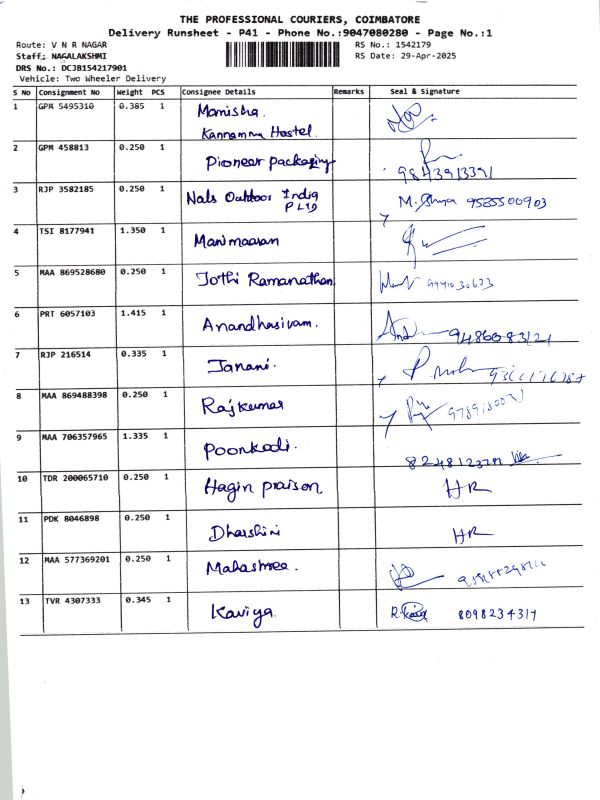 THE PROFESSIONAL COURIERS, COIMBATORE
Delivery Runsheet - P41 - Phone No.:9047080280 - Page No.:1
Route: V N R NAGAR RS No.: 1542179
Staff: NAGALAKSHMI RS Date: 29-Apr-2025
DRS No.: DCJB154217901
Vehicle: Two Wheeler Delivery
S No Consignment No Weight PCS Consignee Details Remarks Seal & Signature
1 GPM 5495310 0.385 1 Manisha.
Kannamma Hostel.
2 GPM 458813 0.250 1 Pioneer packaging
9843913391
3 RJP 3582185 0.250 1 Nals Outdoor India M. 9585500903
P LTD
4 TSI 8177941 1.350 1 Manimaaran
5 MAA 869528680 0.250 1 Jothi Ramanathan
6 PRT 6057103 1.415 1 Anandhasivam.
7 RJP 216514 0.335 1 Janani.
8 MAA 869488398 0.250 1 Rajkumar
9 MAA 706357965 1.335 1 Poonkodi.
10 TDR 200065710 0.250 1 Hagin praison HR
11 PDK 8046898 0.250 1 Dharshini HR
12 MAA 577369201 0.250 1 Mahashree.
13 TVR 4307333 0.345 1 Kaviya. 8098234317